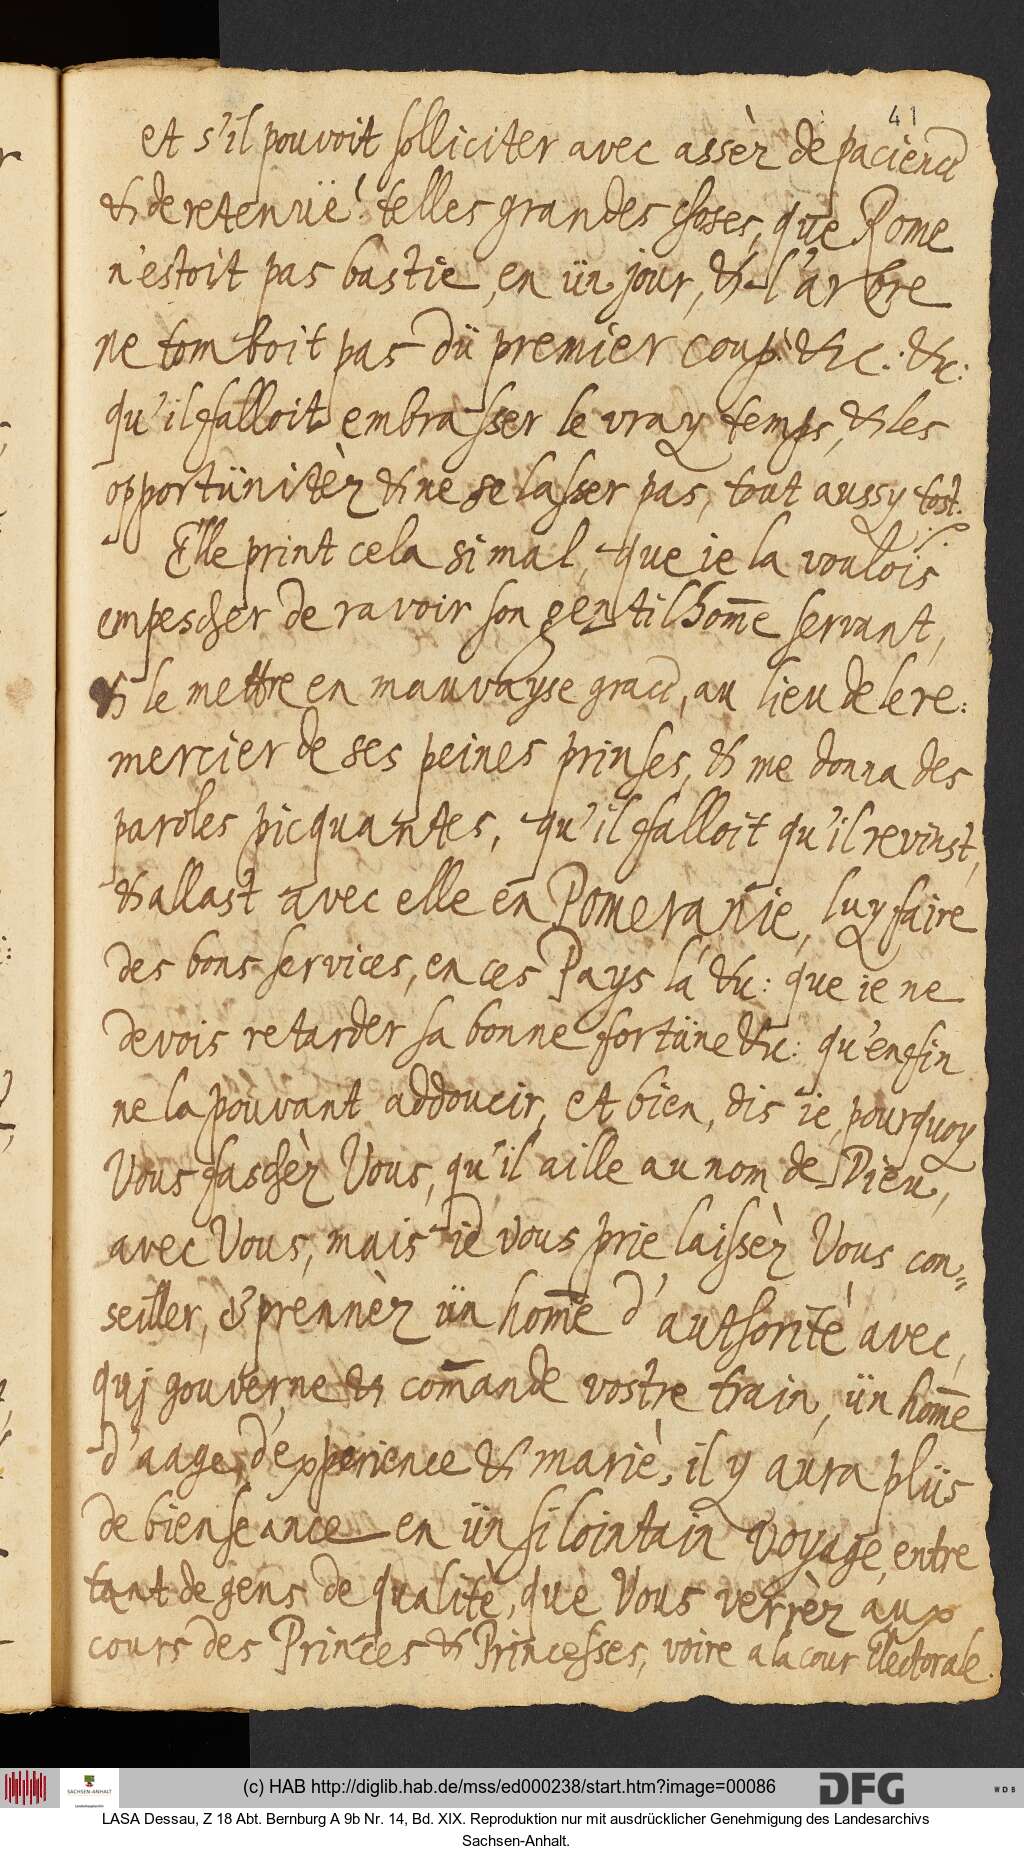 41
et s'il pouvoit solliciter avec assèz de pacience
& de retenuë! telles grandes choses, que Rome
n'estoit pas bastie, en ün jour, & l'arbre
ne tomboit pas dü premier coup: &c.: &c:
qu'il falloit embrasser le vray temps, & les
opportünitèz & ne se lasser pas, tout aussy tost.
Elle print cela si mal, que ie la voulois
empescher de ravoir son gentilhom̄e servant,
& le mettre en mauvayse grace, au lieu de le re:
mercier de ses peines prinses, & me donna des
paroles picquantes, qu'il falloit qu'il revinst,
& allast avec elle en Pomeranie, luy faire
des bons services, en ces Pays là &c: que ie ne
devois retarder sa bonne fortüne &c: qu'enfin
ne la pouvant addoucir, et bien, dis ie, pourquoy
Vous faschèz Vous, qu'il aille au nom de Dieu,
avec Vous, mais ie vous prie laissèz Vous con-
seiller, & prennèz ün hom̄e d'authorité avec,
quj gouverne & com̄ande vostre train, ün hom̄e
d'aage, d'experience & mariè, il y aura plüs
de bienseance en ün si lointain voyage, entre
tant de gens de qualitè, que Vous verrèz aux
cours des Princes & Princesses, voire a la cour Electorale.
(c) HAB http://diglib.hab.de/mss/ed000238/start.htm?image=00086
DFG
WDB
SACHSEN-ANHALT
LASA Dessau, Z 18 Abt. Bernburg A 9b Nr. 14, Bd. XIX. Reproduktion nur mit ausdrücklicher Genehmigung des Landesarchivs
Sachsen-Anhalt.